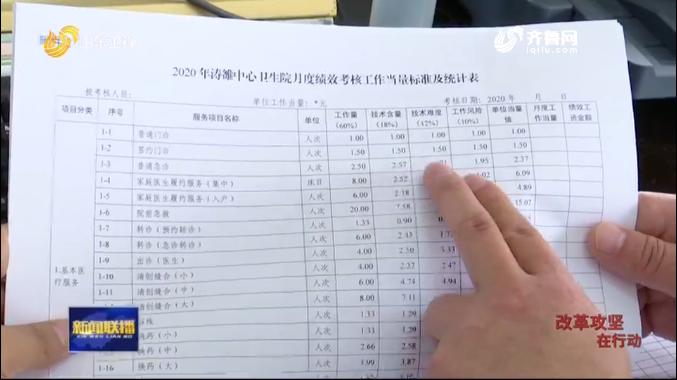 齐鲁网
iqilu.com
2020年涛雒中心卫生院月度绩效考核工作当量标准及统计表
被考核人员： 单位工作当量：*元 考核日期：2020 年 月 日
项目分类 序号 服务项目名称 单位 工作量(60%) 技术含量(18%) 技术难度(12%) 工作风险(10%) 单位当量值 月度工作当量 绩效工资金额
1.基本医疗服务
1-1 普通门诊 人次 1.00 1.00 1.00 1.00 1.00
1-2 签约门诊 人次 1.50 1.50 1.50 1.50 1.50
1-3 普通急诊 人次 2.50 2.57 1.95 2.37
1-4 家庭医生履约服务（集中） 床日 8.00 2.52 6.09
1-5 家庭医生履约服务（入户） 人次 6.00 2.18 4.89
1-6 院前急救 人次 20.00 7.58 15.07
1-7 转诊（预约转诊） 人次 1.33 0.90
1-8 转诊（急诊转诊） 人次 6.00 2.43
1-9 出诊（医生） 人次 4.00 2.50 3.33
1-10 清创缝合（小） 人次 4.00 2.37 2.47
1-11 清创缝合（中） 人次 6.00 4.74 4.94
清创缝合（大） 人次 8.00 7.11
人次 1.33 1.29
换药（小） 人次 1.33 1.29
换药（中） 人次 2.66 2.58
1-16 换药（大） 人次 3.87
新闻联播
XIN WEN LIAN BO
改革攻坚
在行动